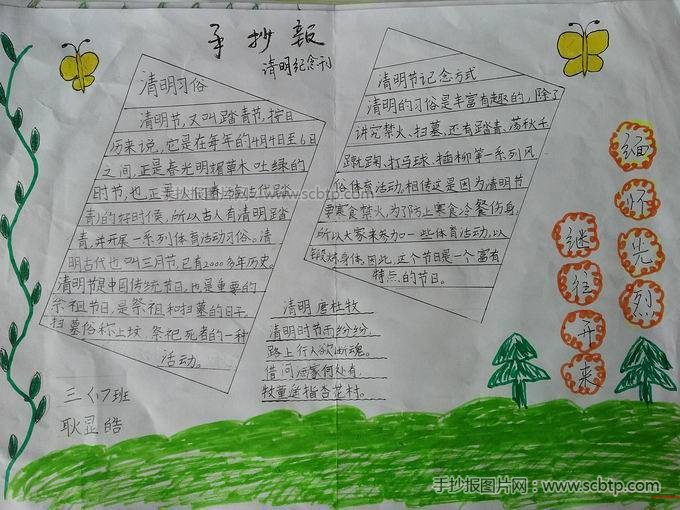 手抄报
清明纪念刊
清明习俗
清明节,又叫踏青节,按日
历来说,它是在每年的4月4日至6日
之间,正是春光明媚草木吐绿的
时节,也正是人们春游古代踏
青的好时候,所以古人有清明踏
青,并开展一系列体育活动习俗。清
明古代也叫三月节,已有2000多年历史。
清明节是中国传统节日,也是重要的
祭祖节日,是祭祖和扫墓的日子。
扫墓俗称上坟,祭祀死者的一种
活动。
三(7)班
耿显皓
清明节记念方式
清明的习俗是丰富有趣的,除了
讲究禁火、扫墓,还有踏青、荡秋千
蹴踘、打马球、插柳第一系列风
俗体育活动。相传这是因为清明节
要寒食禁火,为了防止寒食冷餐伤身,
所以大家来参加一些体育活动,以
锻炼身体。因此,这个节日是一个富有
特点的节日。
清明 唐杜牧
清明时节雨纷纷
路上行人欲断魂。
借问酒家何处有
牧童遥指杏花村。
缅怀光烈
继往开来
手抄报图片网:www.scbtp.com
手抄报图片网:www.scbtp.com